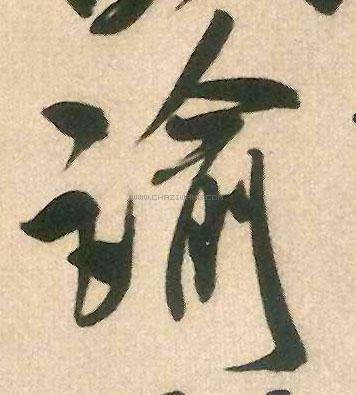 諭
WWW.CHAZIWANG.COM